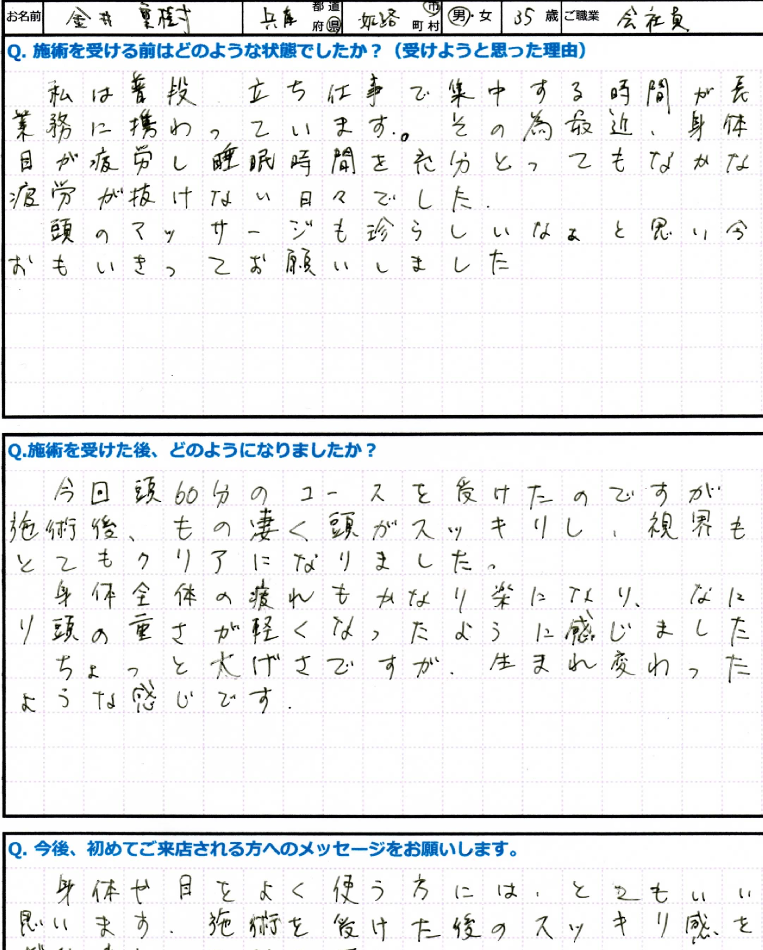 お名前 金井 重樹 兵庫 都道府県 姫路 市町村 男・女 35 歳 ご職業 会社員
Q. 施術を受ける前はどのような状態でしたか？（受けようと思った理由）
私は普段 立ち仕事で集中する時間が長
業務に携わっています。その為最近、身体
目が疲労し睡眠時間を充分とってもなかな
疲労が抜けない日々でした.
頭のマッサージも珍らしいなぁと思い今
おもいきってお願いしました
Q.施術を受けた後、どのようになりましたか？
今回頭60分のコースを受けたのですが
施術後、もの凄く頭がスッキリし、視界も
とてもクリアになりました。
身体全体の疲れもかなり楽になり、なに
り頭の重さが軽くなったように感じました
ちょっと大げさですが、生まれ変わった
ような感じです.
Q. 今後、初めてご来店される方へのメッセージをお願いします。
身体や目をよく使う方には、とてもいい
思います. 施術を受けた後のスッキリ感を